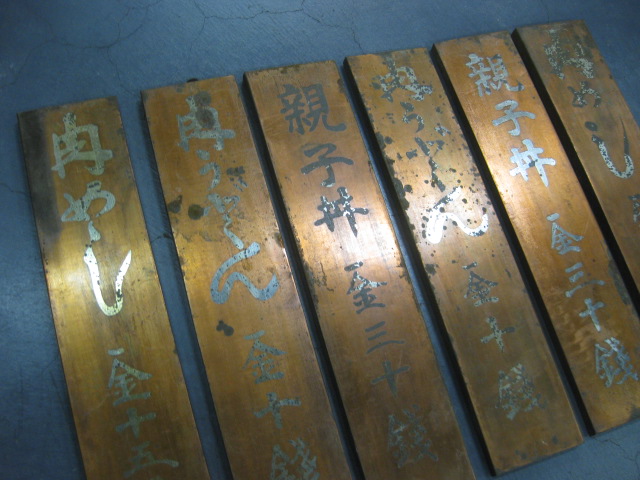 肉めし
親子丼 一金三十銭
肉うどん 一金十銭
親子丼 一金三十銭
肉うどん 一金十銭
肉めし 一金十五